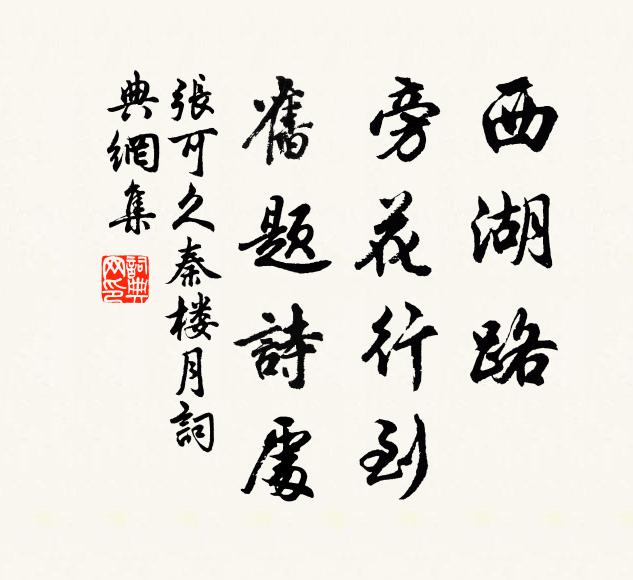 西湖路
旁花行到
舊题詩處
張可久秦楼月詞
典網集
詞典網印